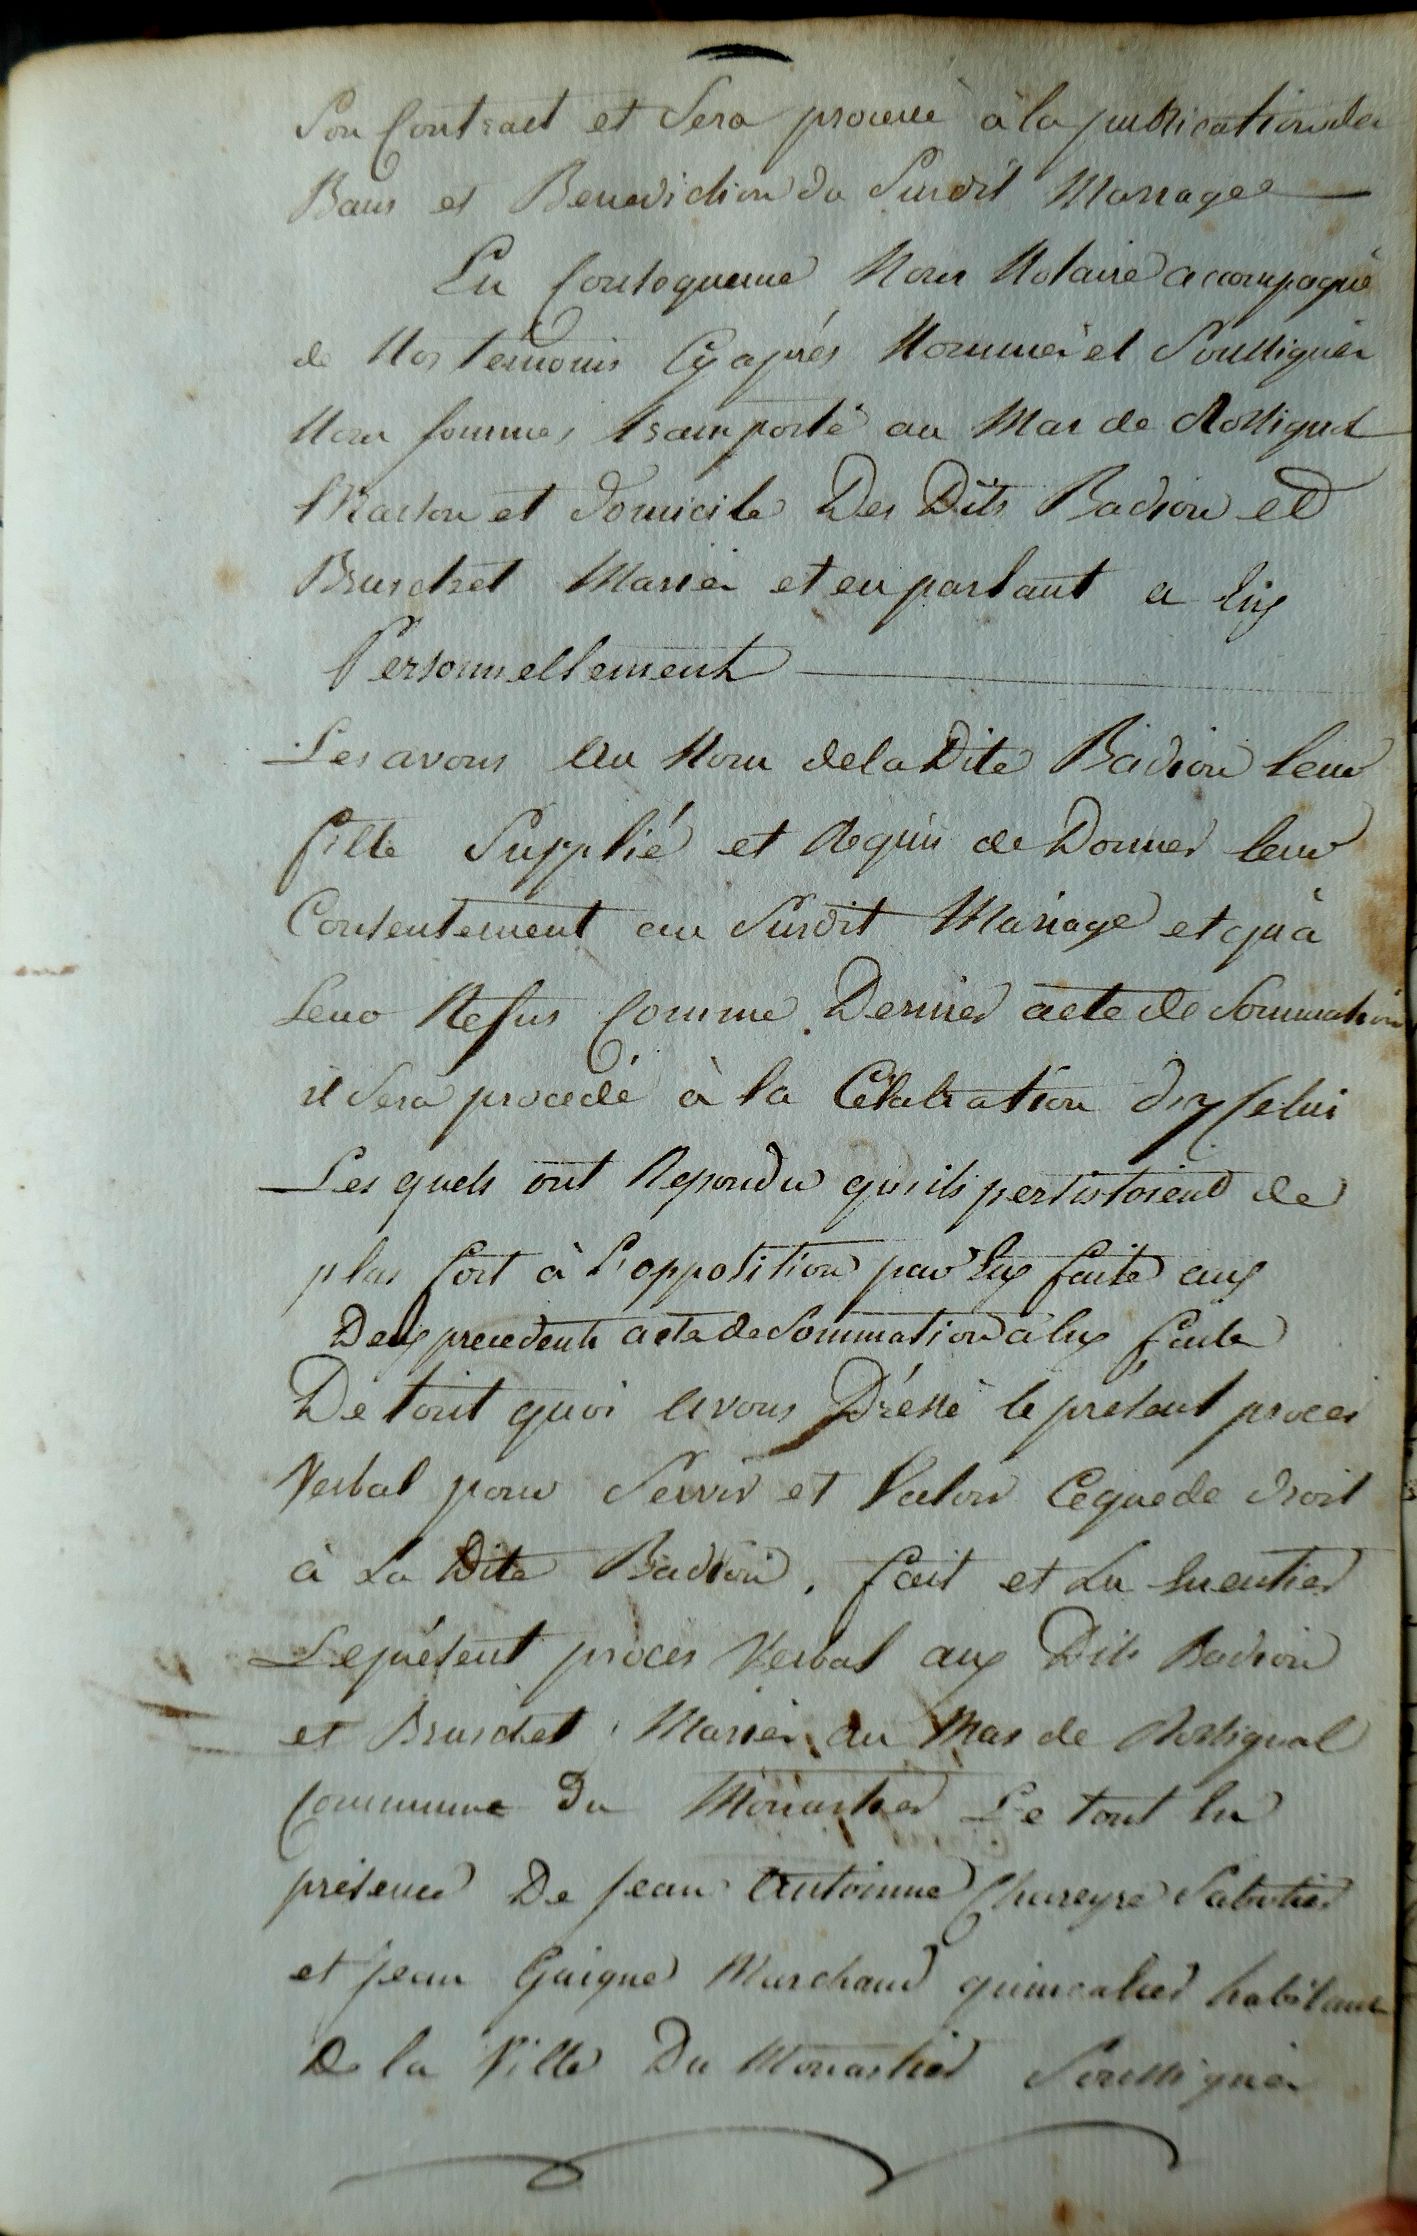 Son Contract et Sera procedé à la publication des
Bans et Benediction du Surdit Mariage
En Consequence Nous Notaire accompagné
de Nos temoins Cy après Nommés et Soussignés
Nous sommes transporté au Mas de Rossignol
Maison et domicile Des Dits Badiou et
Bruschet Mariés et en parlant a Eux
Personnellement
Les avons Au Nom de la Dite Badiou leur
fille Supplié et Requis de Donner leur
Consentement au Surdit Mariage et qu'à
Leur Refus Comme Dernier acte de Sommation
il Sera procedé à la Célebration d'ycelui
Les quels ont Repondu qu'ils persistoient de
plus fort à L'opposition par Eux faite aux
Deux precedents acte de Sommation à Eux faits
De tout quoi avons Dréssé le présent proces
Verbal pour Servir et Valoir Ceque de droit
à La Dite Badiou. fait et Lu En entier
Le présent proces Verbal aux Dits Badiou
et Bruschet Mariés au Mas de Rossignol
Commune Du Monastier Le tout En
présence De Jean Antoinne Chareyre Sabotier
et Jean Gaigne Marchand quincalier habitants
De la Ville Du Monastier Soussignés